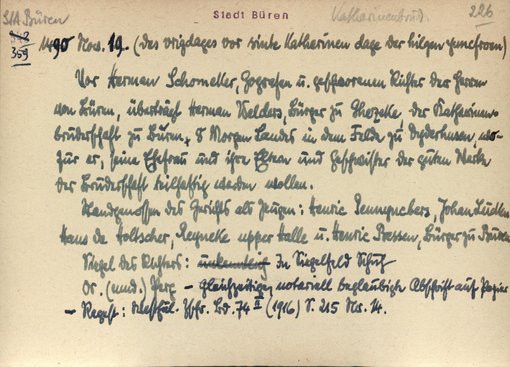 StA Büren Stadt Büren Katharinenbrud. 226
359
1490 Nov. 19. (des vrigdages vor sinte Katherinen dage der hilgen juncfrowen)
Vor Herman Schomeller, Gografen u. geschworenen Richter der Herren
von Büren, überträgt Herman Welders, Bürger zu Ghezeke, der Katharinen-
bruderschaft zu Büren, 8 Morgen Landes in dem Felde zu Dederhusen wo-
für er, seine Ehefrau und ihre Eltern und Geschwister der guten Werke
der Bruderschaft teilhaftig werden wollen.
Standgenossen des Gerichts als Zeugen: Henric Pennynchers, Johan Ludken
Hans de Holtscher, Reyneke upper Halle u. Henric Bressen, Bürger zu Büren
Siegel des Richters: undeutlich In Siegelfeld Schuh
Or. (mnd.) Perg. – gleichzeitige, notariell beglaubigte Abschrift auf Papier
– Regest: Westfäl. Ztschr. Bd. 74 II (1916) S. 215 Nr. 14.